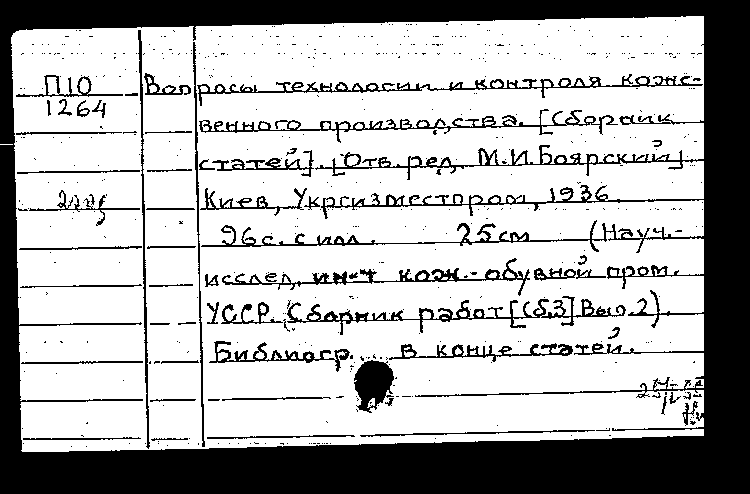 П10 Вопросы технологии и контроля кожевенного
1264
венного производства. [Сборник
статей]. [Отв. ред. М.И. Боярский].
Киев, Укргизместпром, 1936.
96с. с илл. 25см (Науч.-
исслед. ин-т кож.-обувной пром.
УССР. Сборник работ [Сб.3] Вып.2).
Библиогр. в конце статей.